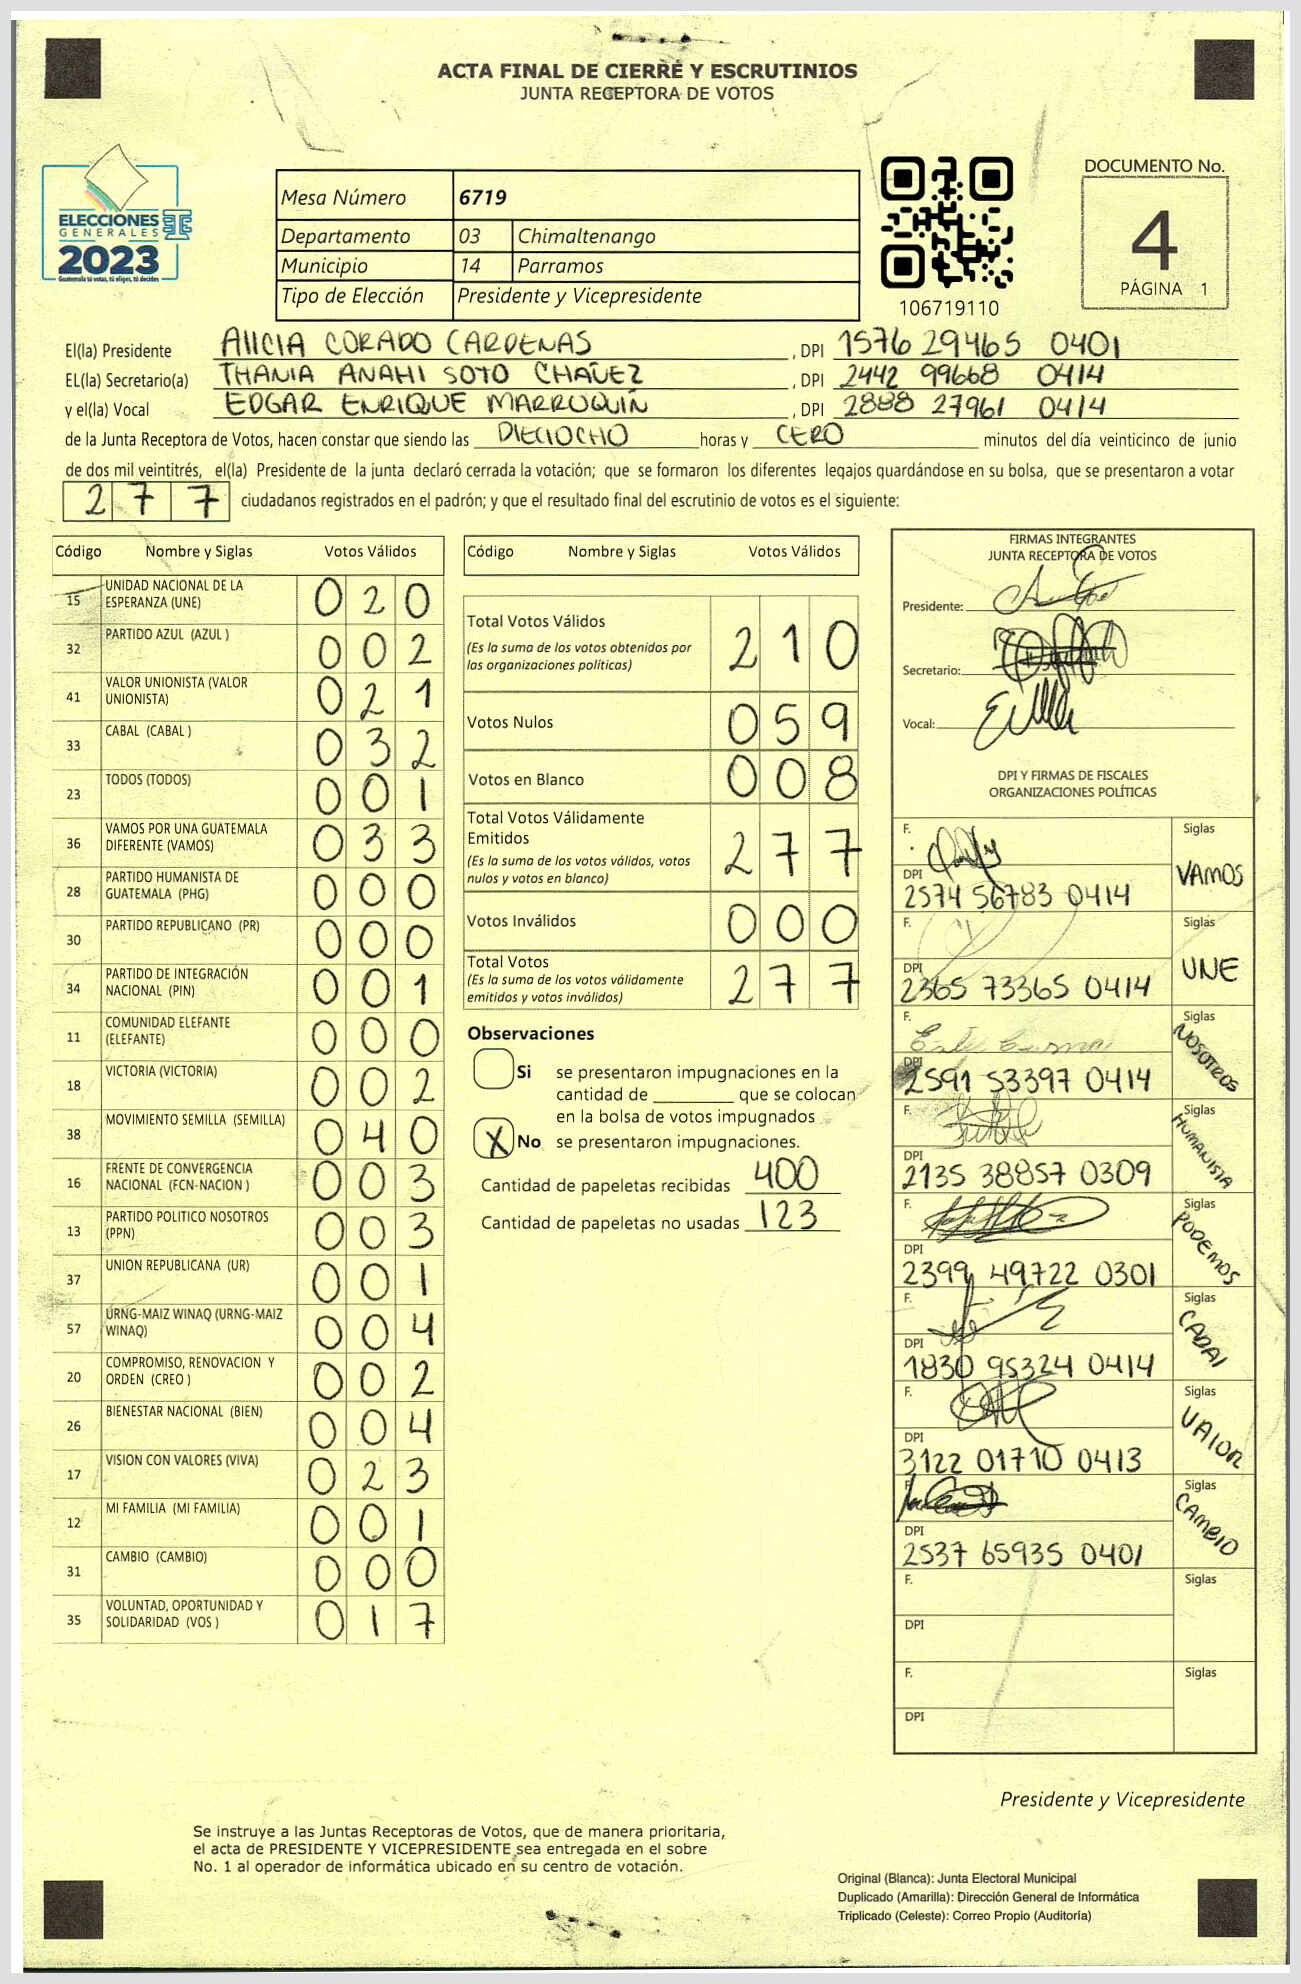 ACTA FINAL DE CIERRE Y ESCRUTINIOS
JUNTA RECEPTORA DE VOTOS
ELECCIONES
GENERALES
2023
Guatemala tú votas, tú eliges, tú decides
Mesa Número 6719
Departamento 03 Chimaltenango
Municipio 14 Parramos
Tipo de Elección Presidente y Vicepresidente
106719110
DOCUMENTO No.
4
PÁGINA 1
El(la) Presidente AlICIA CORADO CARDENAS , DPI 1576 29465 0401
EL(la) Secretario(a) THANIA ANAHI SOTO CHAVEZ , DPI 2442 99668 0414
y el(la) Vocal EDGAR ENRIQUE MARROQUÍN , DPI 2888 27961 0414
de la Junta Receptora de Votos, hacen constar que siendo las DIECIOCHO horas y CERO minutos del día veinticinco de junio
de dos mil veintitrés, el(la) Presidente de la junta declaró cerrada la votación; que se formaron los diferentes legajos guardándose en su bolsa, que se presentaron a votar
277 ciudadanos registrados en el padrón; y que el resultado final del escrutinio de votos es el siguiente:
Código Nombre y Siglas Votos Válidos
15 UNIDAD NACIONAL DE LA ESPERANZA (UNE) 020
32 PARTIDO AZUL (AZUL ) 002
41 VALOR UNIONISTA (VALOR UNIONISTA) 021
33 CABAL (CABAL ) 032
23 TODOS (TODOS) 001
36 VAMOS POR UNA GUATEMALA DIFERENTE (VAMOS) 033
28 PARTIDO HUMANISTA DE GUATEMALA (PHG) 000
30 PARTIDO REPUBLICANO (PR) 000
34 PARTIDO DE INTEGRACIÓN NACIONAL (PIN) 001
11 COMUNIDAD ELEFANTE (ELEFANTE) 000
18 VICTORIA (VICTORIA) 002
38 MOVIMIENTO SEMILLA (SEMILLA) 040
16 FRENTE DE CONVERGENCIA NACIONAL (FCN-NACION ) 003
13 PARTIDO POLITICO NOSOTROS (PPN) 003
37 UNION REPUBLICANA (UR) 001
57 URNG-MAIZ WINAQ (URNG-MAIZ WINAQ) 004
20 COMPROMISO, RENOVACION Y ORDEN (CREO ) 002
26 BIENESTAR NACIONAL (BIEN) 004
17 VISION CON VALORES (VIVA) 023
12 MI FAMILIA (MI FAMILIA) 001
31 CAMBIO (CAMBIO) 000
35 VOLUNTAD, OPORTUNIDAD Y SOLIDARIDAD (VOS ) 017
Código Nombre y Siglas Votos Válidos
Total Votos Válidos 210
(Es la suma de los votos obtenidos por
las organizaciones politicas)
Votos Nulos 059
Votos en Blanco 008
Total Votos Válidamente
Emitidos 277
(Es la suma de los votos válidos, votos
nulos y votos en blanco)
Votos Inválidos 000
Total Votos 277
(Es la suma de los votos válidamente
emitidos y votos inválidos)
Observaciones
Si se presentaron impugnaciones en la
cantidad de ________ que se colocan
en la bolsa de votos impugnados
X No se presentaron impugnaciones.
Cantidad de papeletas recibidas 400
Cantidad de papeletas no usadas 123
FIRMAS INTEGRANTES
JUNTA RECEPTORA DE VOTOS
Presidente:
Secretario:
Vocal:
DPI Y FIRMAS DE FISCALES
ORGANIZACIONES POLÍTICAS
F. Siglas
DPI VAMOS
2574 56783 0414
F. Siglas
DPI UNE
2365 73365 0414
F. Siglas
DPI NOSOTROS
2591 53397 0414
F. Siglas
DPI HUMANISTA
2135 38857 0309
F. Siglas
DPI PODEMOS
2399 49722 0301
F. Siglas
DPI CABAl
1830 95324 0414
F. Siglas
DPI VAlOR
3122 01710 0413
F. Siglas
DPI CAMBIO
2537 65935 0401
F. Siglas
DPI
F. Siglas
DPI
Presidente y Vicepresidente
Se instruye a las Juntas Receptoras de Votos, que de manera prioritaria,
el acta de PRESIDENTE Y VICEPRESIDENTE sea entregada en el sobre
No. 1 al operador de informática ubicado en su centro de votación.
Original (Blanca): Junta Electoral Municipal
Duplicado (Amarilla): Dirección General de Informática
Triplicado (Celeste): Correo Propio (Auditoría)